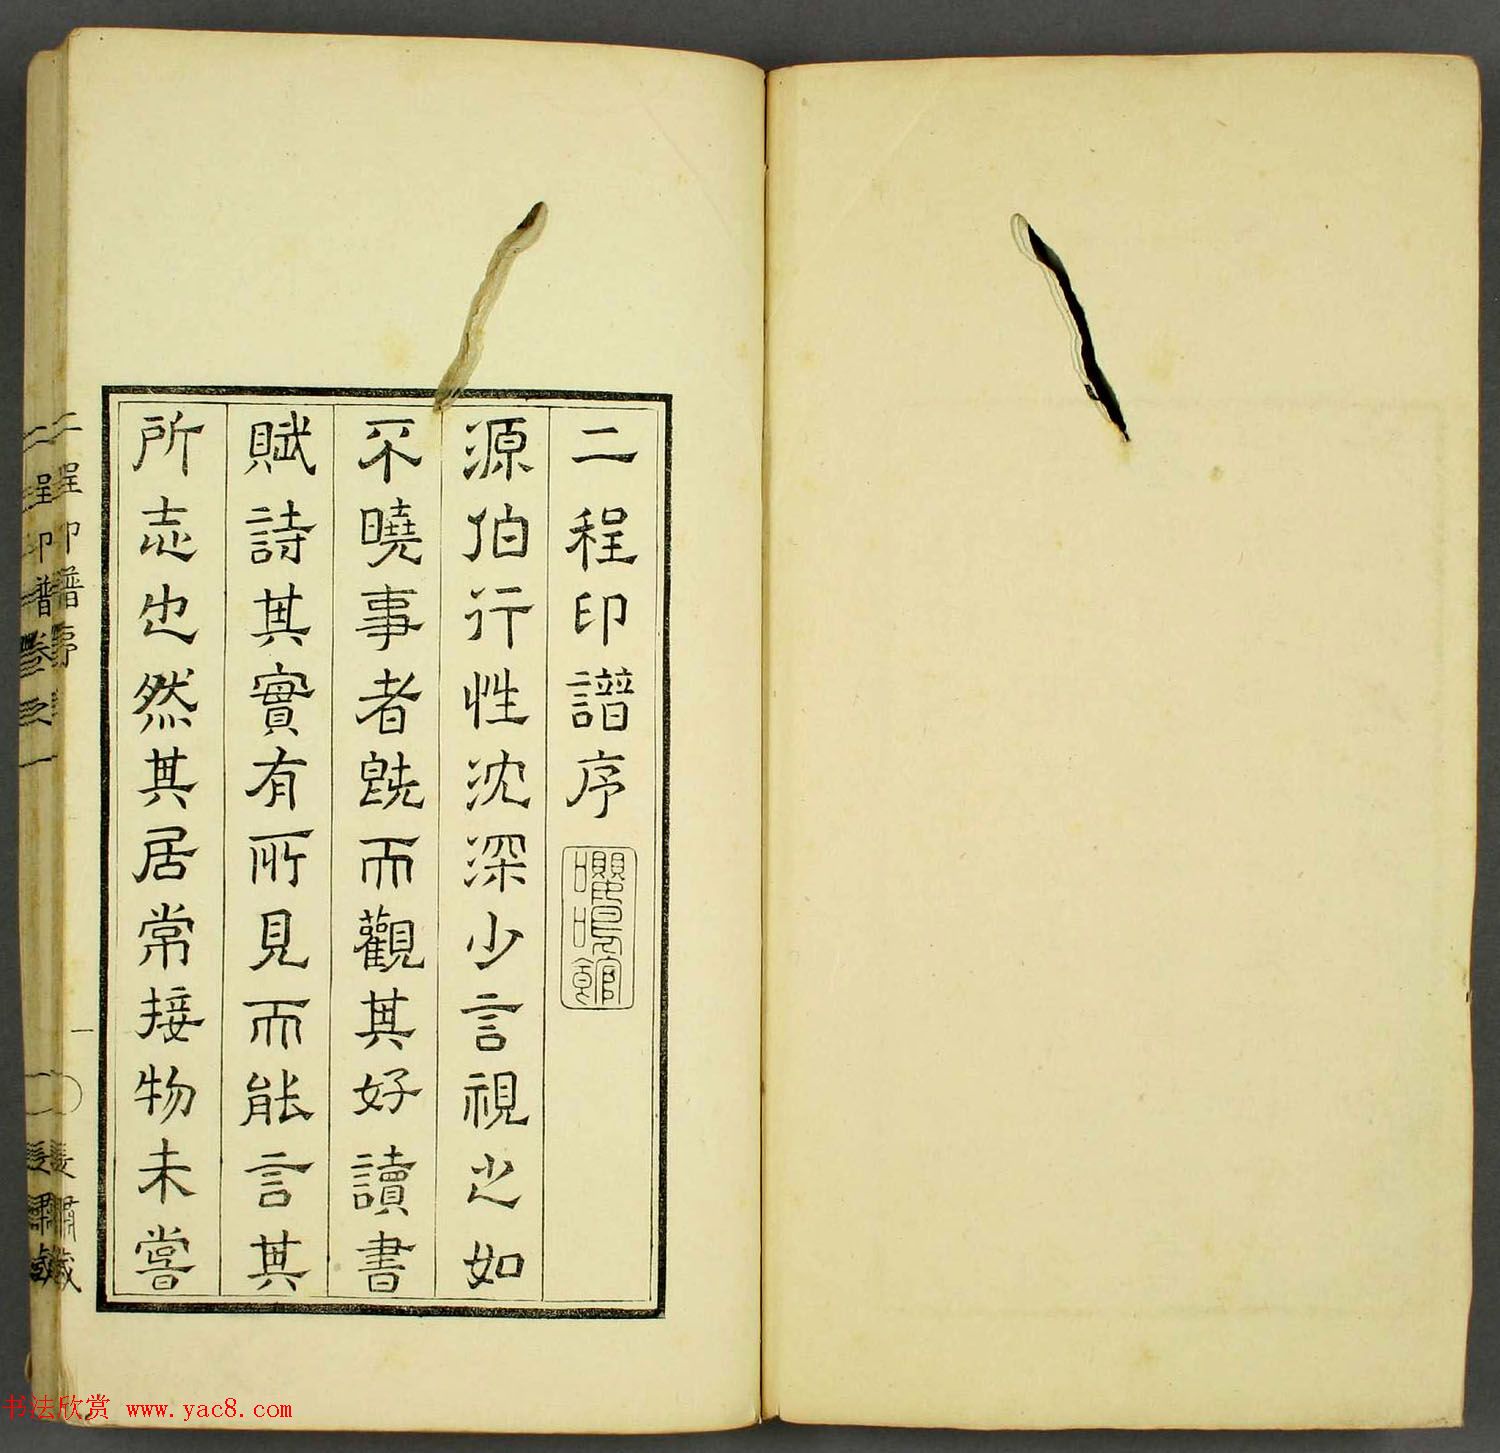 二程印譜序
嚶鳴館
源伯行性沈深少言視之如
不曉事者旣而觀其好讀書
賦詩其實有所見而能言其
所志也然其居常接物未嘗
二程印譜序
一
二程印譜卷之一
書法欣赏 www.yac8.com